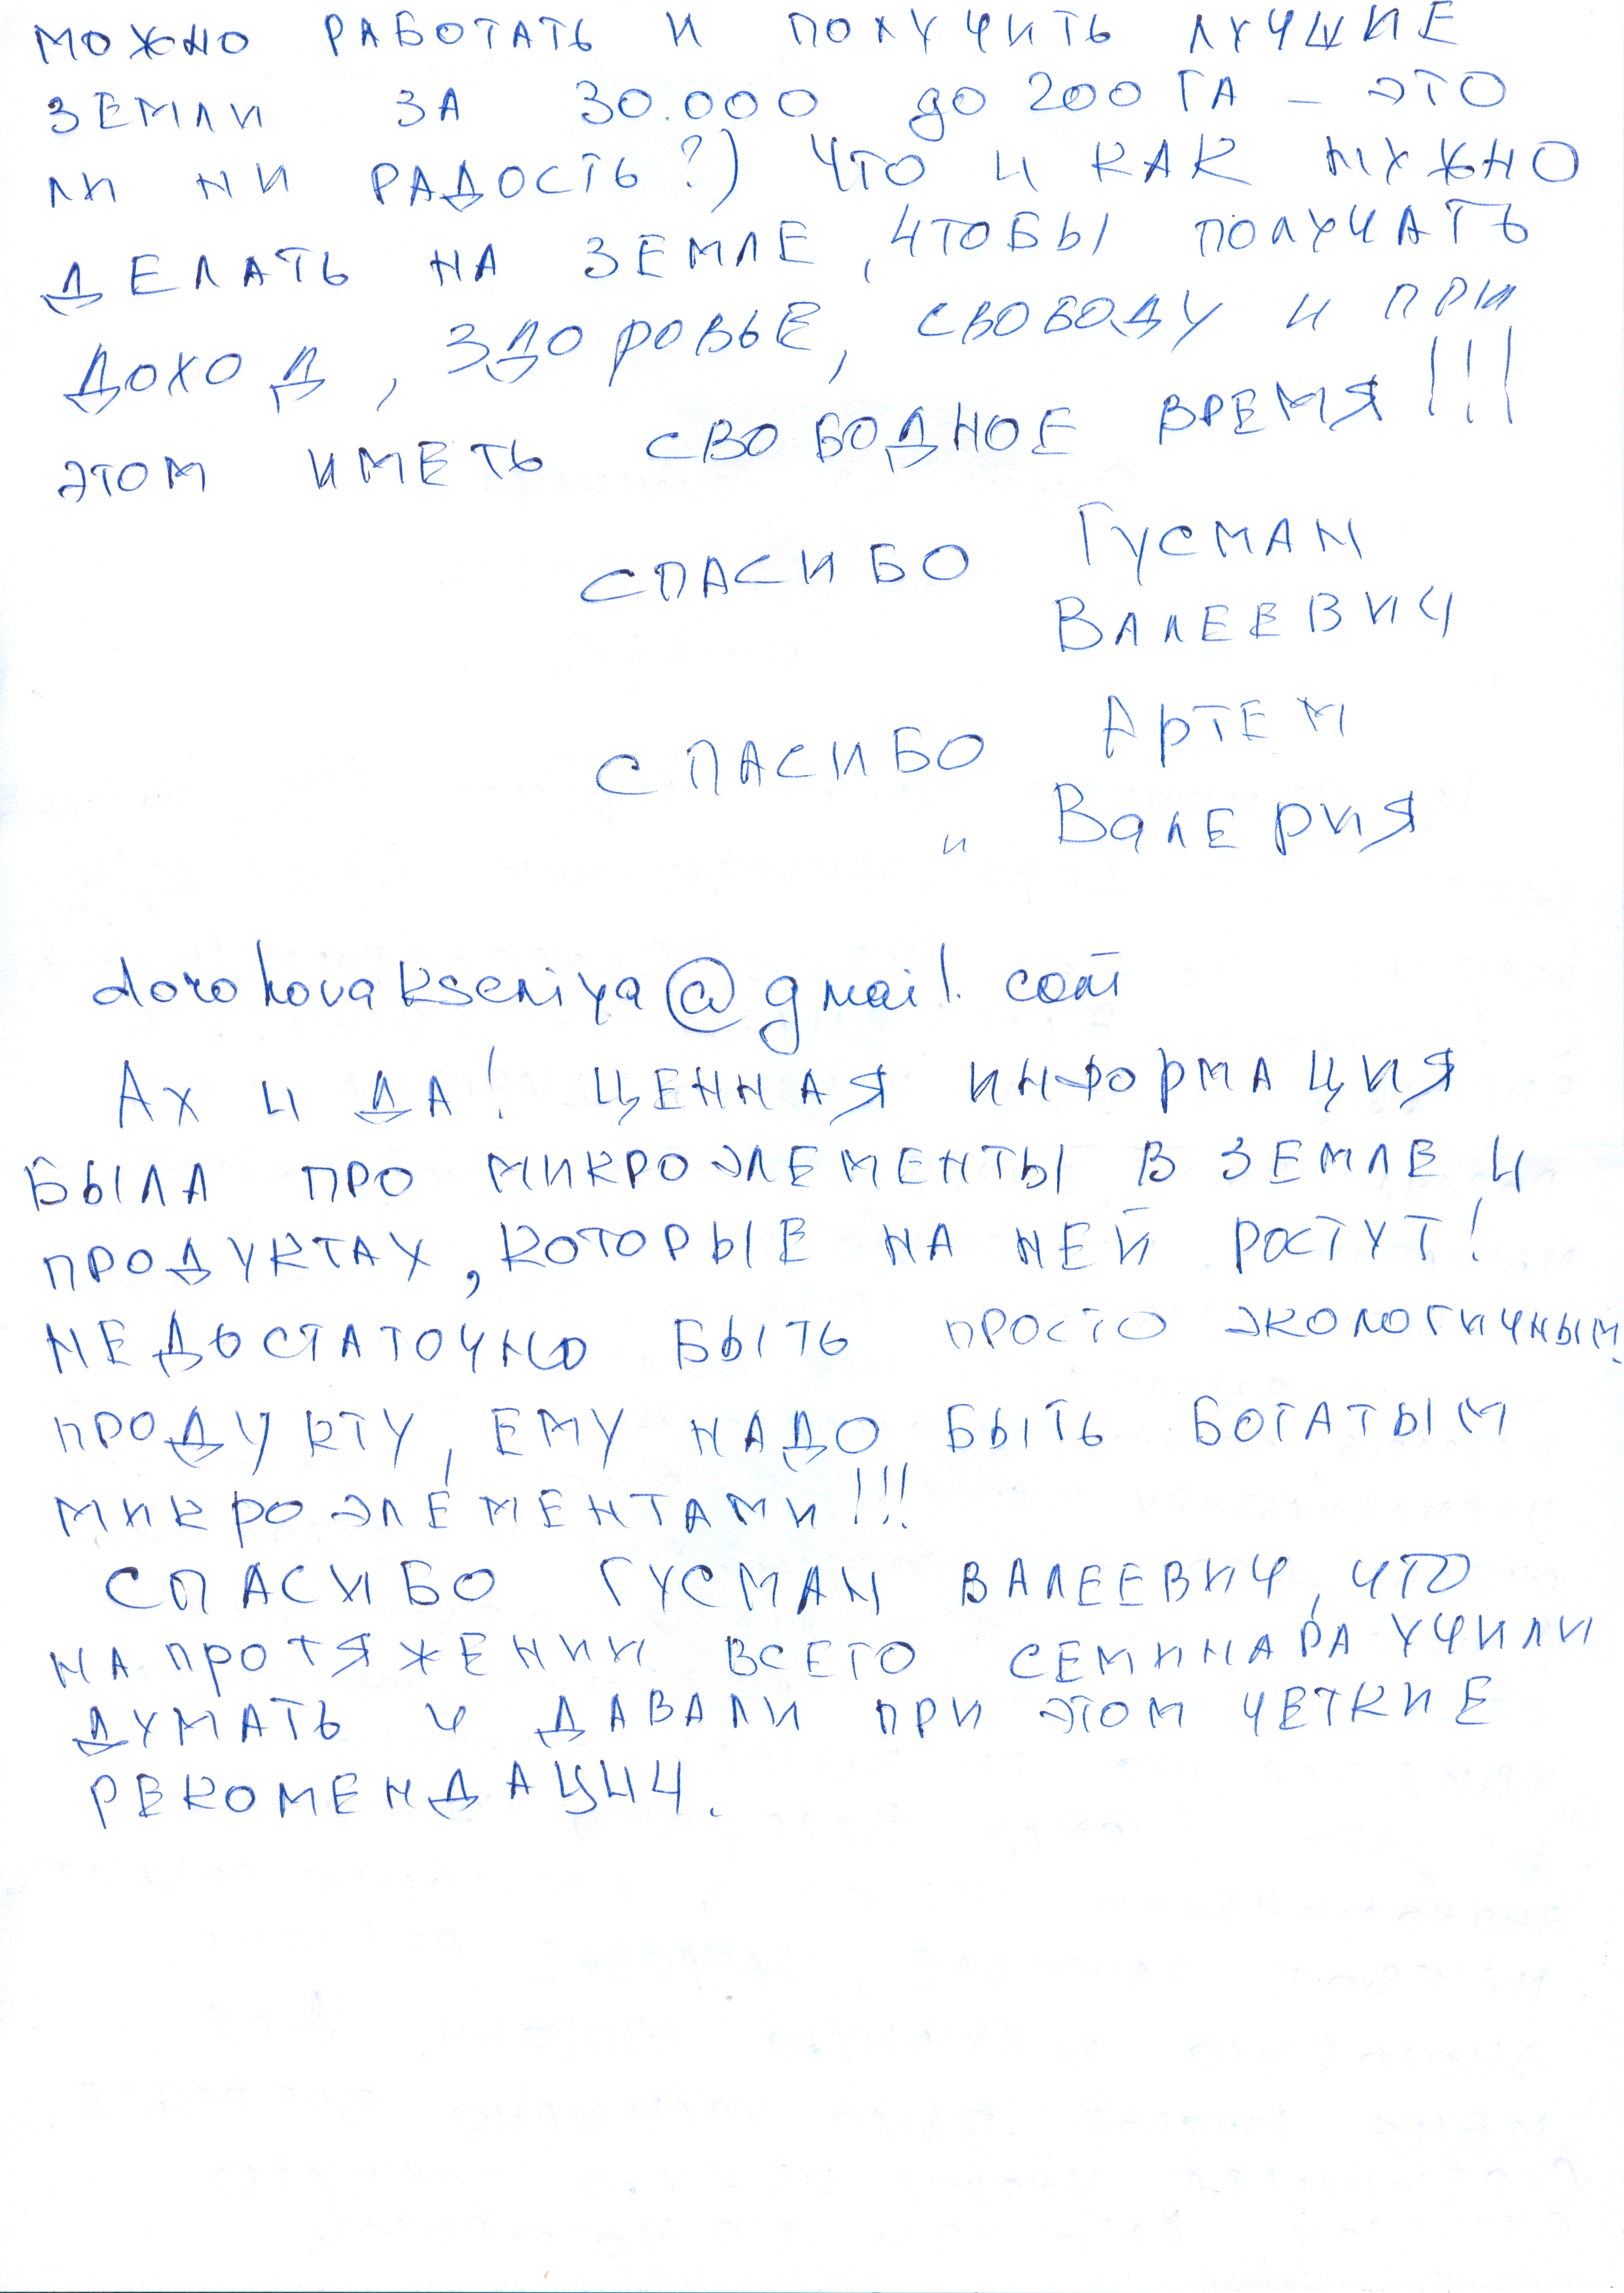 МОЖНО РАБОТАТЬ И ПОЛУЧИТЬ ЛУЧШИЕ
ЗЕМЛИ ЗА 30.000 до 200 ГА – ЭТО
ЛИ НИ РАДОСТЬ?) ЧТО И КАК НУЖНО
ДЕЛАТЬ НА ЗЕМЛЕ, ЧТОБЫ ПОЛУЧАТЬ
ДОХОД, ЗДОРОВЬЕ, СВОБОДУ И ПРИ
ЭТОМ ИМЕТЬ СВОБОДНОЕ ВРЕМЯ!!!
СПАСИБО ГУСМАН
ВАЛЕЕВИЧ
СПАСИБО АРТЕМ
и ВАЛЕРИЯ
dorohovakseniya@gmail.com
АХ И ДА! ЦЕННАЯ ИНФОРМАЦИЯ
БЫЛА ПРО МИКРОЭЛЕМЕНТЫ В ЗЕМЛЕ И
ПРОДУКТАХ, КОТОРЫЕ НА НЕЙ РОСТУТ!
НЕДОСТАТОЧНО БЫТЬ ПРОСТО ЭКОЛОГИЧНЫМ
ПРОДУКТУ, ЕМУ НАДО БЫТЬ БОГАТЫМ
МИКРОЭЛЕМЕНТАМИ!!!
СПАСИБО ГУСМАН ВАЛЕЕВИЧ, ЧТО
НА ПРОТЯЖЕНИИ ВСЕГО СЕМИНАРА УЧИЛИ
ДУМАТЬ И ДАВАЛИ ПРИ ЭТОМ ЧЕТКИЕ
РЕКОМЕНДАЦИИ.